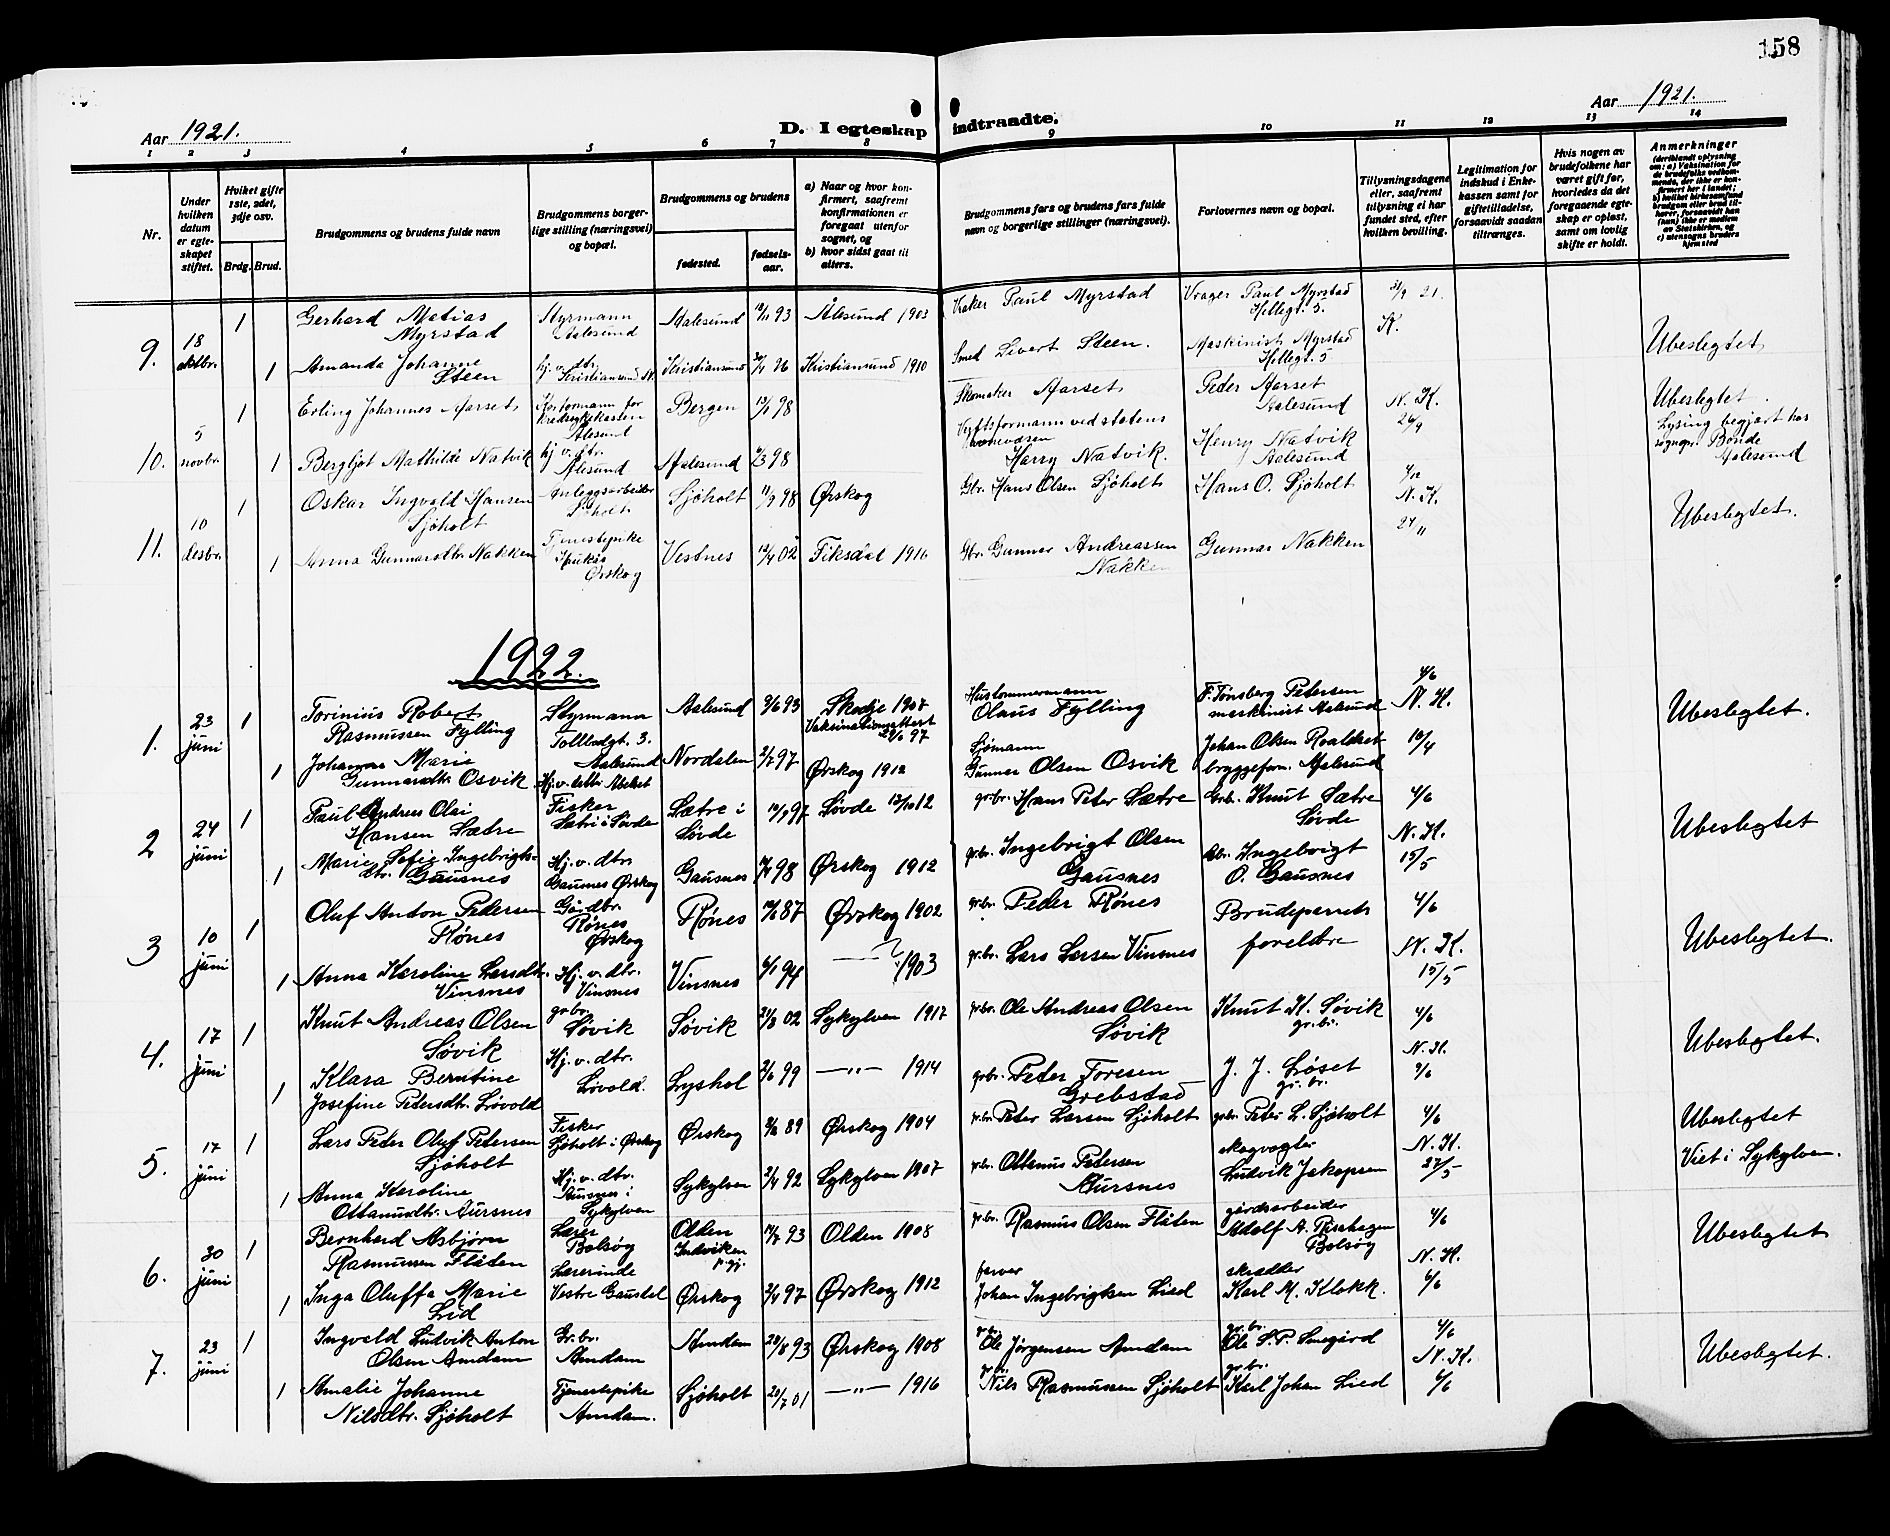 158
Aar 1921.
D. I egteskap indtraadte.
Aar 1921.
1 2 3 4 5 6 7 8 9 10 11 12 13 14
Nr.
Under hvilken datum er egteskapet stiftet.
Hvilket gifte 1ste, 2det, 3dje osv.
Brdg. Brud.
Brudgommens og brudens fulde navn
Brudgommens borgerlige stilling (næringsvei) og bopæl.
Brudgommens og brudens
fødested.
fødselsaar.
a) Naar og hvor konfirmert, saafremt konfirmationen er foregaat utenfor sognet, og
b) hvor sidst gaat til alters.
Brudgommens fars og brudens fars fulde navn og borgerlige stillinger (næringsvei).
Forlovernes navn og bopæl.
Tillysningsdagene eller, saafremt tillysning ei har fundet sted, efter hvilken bevilling.
Legitimation for indskud i Enkekassen samt for giftetilladelse, forsaavidt saadan tiltrænges.
Hvis nogen av brudefolkene har været gift før, hvorledes da det foregaaende egteskap er opløst, samt om lovlig skifte er holdt.
Anmerkninger
9. 18 oktbr. 1 Gerhard Matias Myrstad Styrmann Aalesund Aalesund 93 Ålesund 1903 Vraker Paul Myrstad Vrager Paul Myrstad Hellegt. 5. 21. Ubeslegtet
1 Amanda Johanne Steen hj. v. dtr. Kristiansund N. Kristiansund Kristiansund 1910 Smed Sivert Steen. Maskinist Myrstad Hellegt. 5 K.
10. 5 novbr. 1 Erling Johannes Aarset Ålesund Bergen 98 Skomaker Aarset Peder Aarset Aalesund N. K. Ubeslegtet.
Lysing begjært hos sogнepr. Bonde Aalesund
1 Bergljot Mathilde Natvik hj. v. dtr. Ålesund Aalesund 98 Harry Natvik. Henry Natvik Aalesund 26/9
11. 10 desbr. 1 Oskar Ingvald Hansen Sjøholt Anleggsarbeider Sjøholt Sjøholt 11/9 98 Ørskog Gbr. Hans Olsen Sjøholt Hans O. Sjøholt N. K. Ubeslegtet.
1 Anna Gunnarsdtr. Nakken Tjenestepike Ørskog Vestnes 02 Fiksdal 1916 Gbr. Gunnar Andreassen Nakken Gunnar Nakken
1922.
1. 23 juni 1 Torinius Robert Rasmussen Fylling Styrmann Tollbodgt. 3. Aalesund Aalesund 93 Skodje 1907 Hustømmermann Olaus Fylling F. Tønsberg Petersen maskinist Aalesund 4/6 N. K. Ubeslegtet.
1 Johanna Marie Gunnarsdtr. Osvik Nordalen 97 Ørskog 1912 Sjømann Gunnar Olsen Osvik Johan Olsen Roaldset bryggeform. Aalesund 10/4
2 24 juni 1 Paul Andreas Olai Hansen Sætre Fisker Sætre i Søvde Sætre i Søvde 97 Søvde 13/10 12 gr.br. Hans Peter Sætre Grbr. Knut Sætre Søvde 4/6 Ubeslegtet
1 Marie Sofie Ingebrigtsdtr. Gausnes Hj. v. dtr. Gausnes Ørskog Gausnes 98 Ørskog 1912 gr.br. Ingebrigt Olsen Gausnes Ingebrigt O. Gausnes N. K. 15/5
3 10 juni 1 Oluf Anton Pedersen Rønes Gårdbr. Rønes Ørskog Rønes 87 Ørskog 1902 gr.br. Peder Rønes Brudeparrets foreldre 4/6 Ubeslegtet.
1 Anna Karoline Larsdtr. Vinsnes Hj. v. dtr. Vinsnes Vinsnes 94 ? 1903 gr.br. Lars Larsen Vinsnes N. K. 15/5
4. 17 juni 1 Knut Andreas Olsen Søvik gr.br. Søvik Søvik 02 Sykylven 1917 gr.br. Ole Andreas Olsen Søvik Knut K. Søvik gr.br. 4/6 Ubeslegtet.
1 Klara Berntine Josefine Petersdtr. Løvold Hj. v. dtr. Løvold. Lyshol 99 —"— 1914 gr.br. Peter Toresen Grebstad J. J. Løset gr.br. N. K.
5. 17 juni 1 Lars Peder Oluf Petersen Sjøholt Fisker Sjøholt i Ørskog Ørskog 89 Ørskog 1904 gr.br. Peter Larsen Sjøholt gr.br. Peter L. Sjøholt 4/6 Ubeslegtet
1 Anna Karoline Ottanusdtr. Aursnes Hj. v. dtr. Aursnes i Sykylven Sykylven 92 Sykylven 1907 gr.br. Ottanus Petersen Aursnes skogvogter Ludvik Jakopsen N. K. 27/5 Viet i Sykylven.
6. 30 juni 1 Bernhard Asbjørn Rasmussen Flåten Lærer Bolsøy Olden Indviken p.gj. 93 Olden 1908 gr.br. Rasmus Olsen Flåten gårdsarbeider Adolf A. Bolsøy 4/6 Ubeslegtet
1 Inga Oluffa Marie Lid Lærerinde Vestre Gausdal Ørskog 97 Ørskog 1912 farver Johan Ingebrigtsen Lied skrædder Karl M. Klokk. N. K.
7. 23 juni 1 Ingvald Ludvik Anton Olsen Amdam Gr.br. Amdam Amdam 93 Ørskog 1908 gr.br. Ole Jørgensen Amdam gr.br. Ole S. P. Smegård 4/6 Ubeslegtet.
1 Amalie Johanne Nilsdtr. Sjøholt Tjenestepike Amdam. Sjøholt 01 —"— 1916 Nils Rasmussen Sjøholt gr.br. Karl Johan Lied N. K.